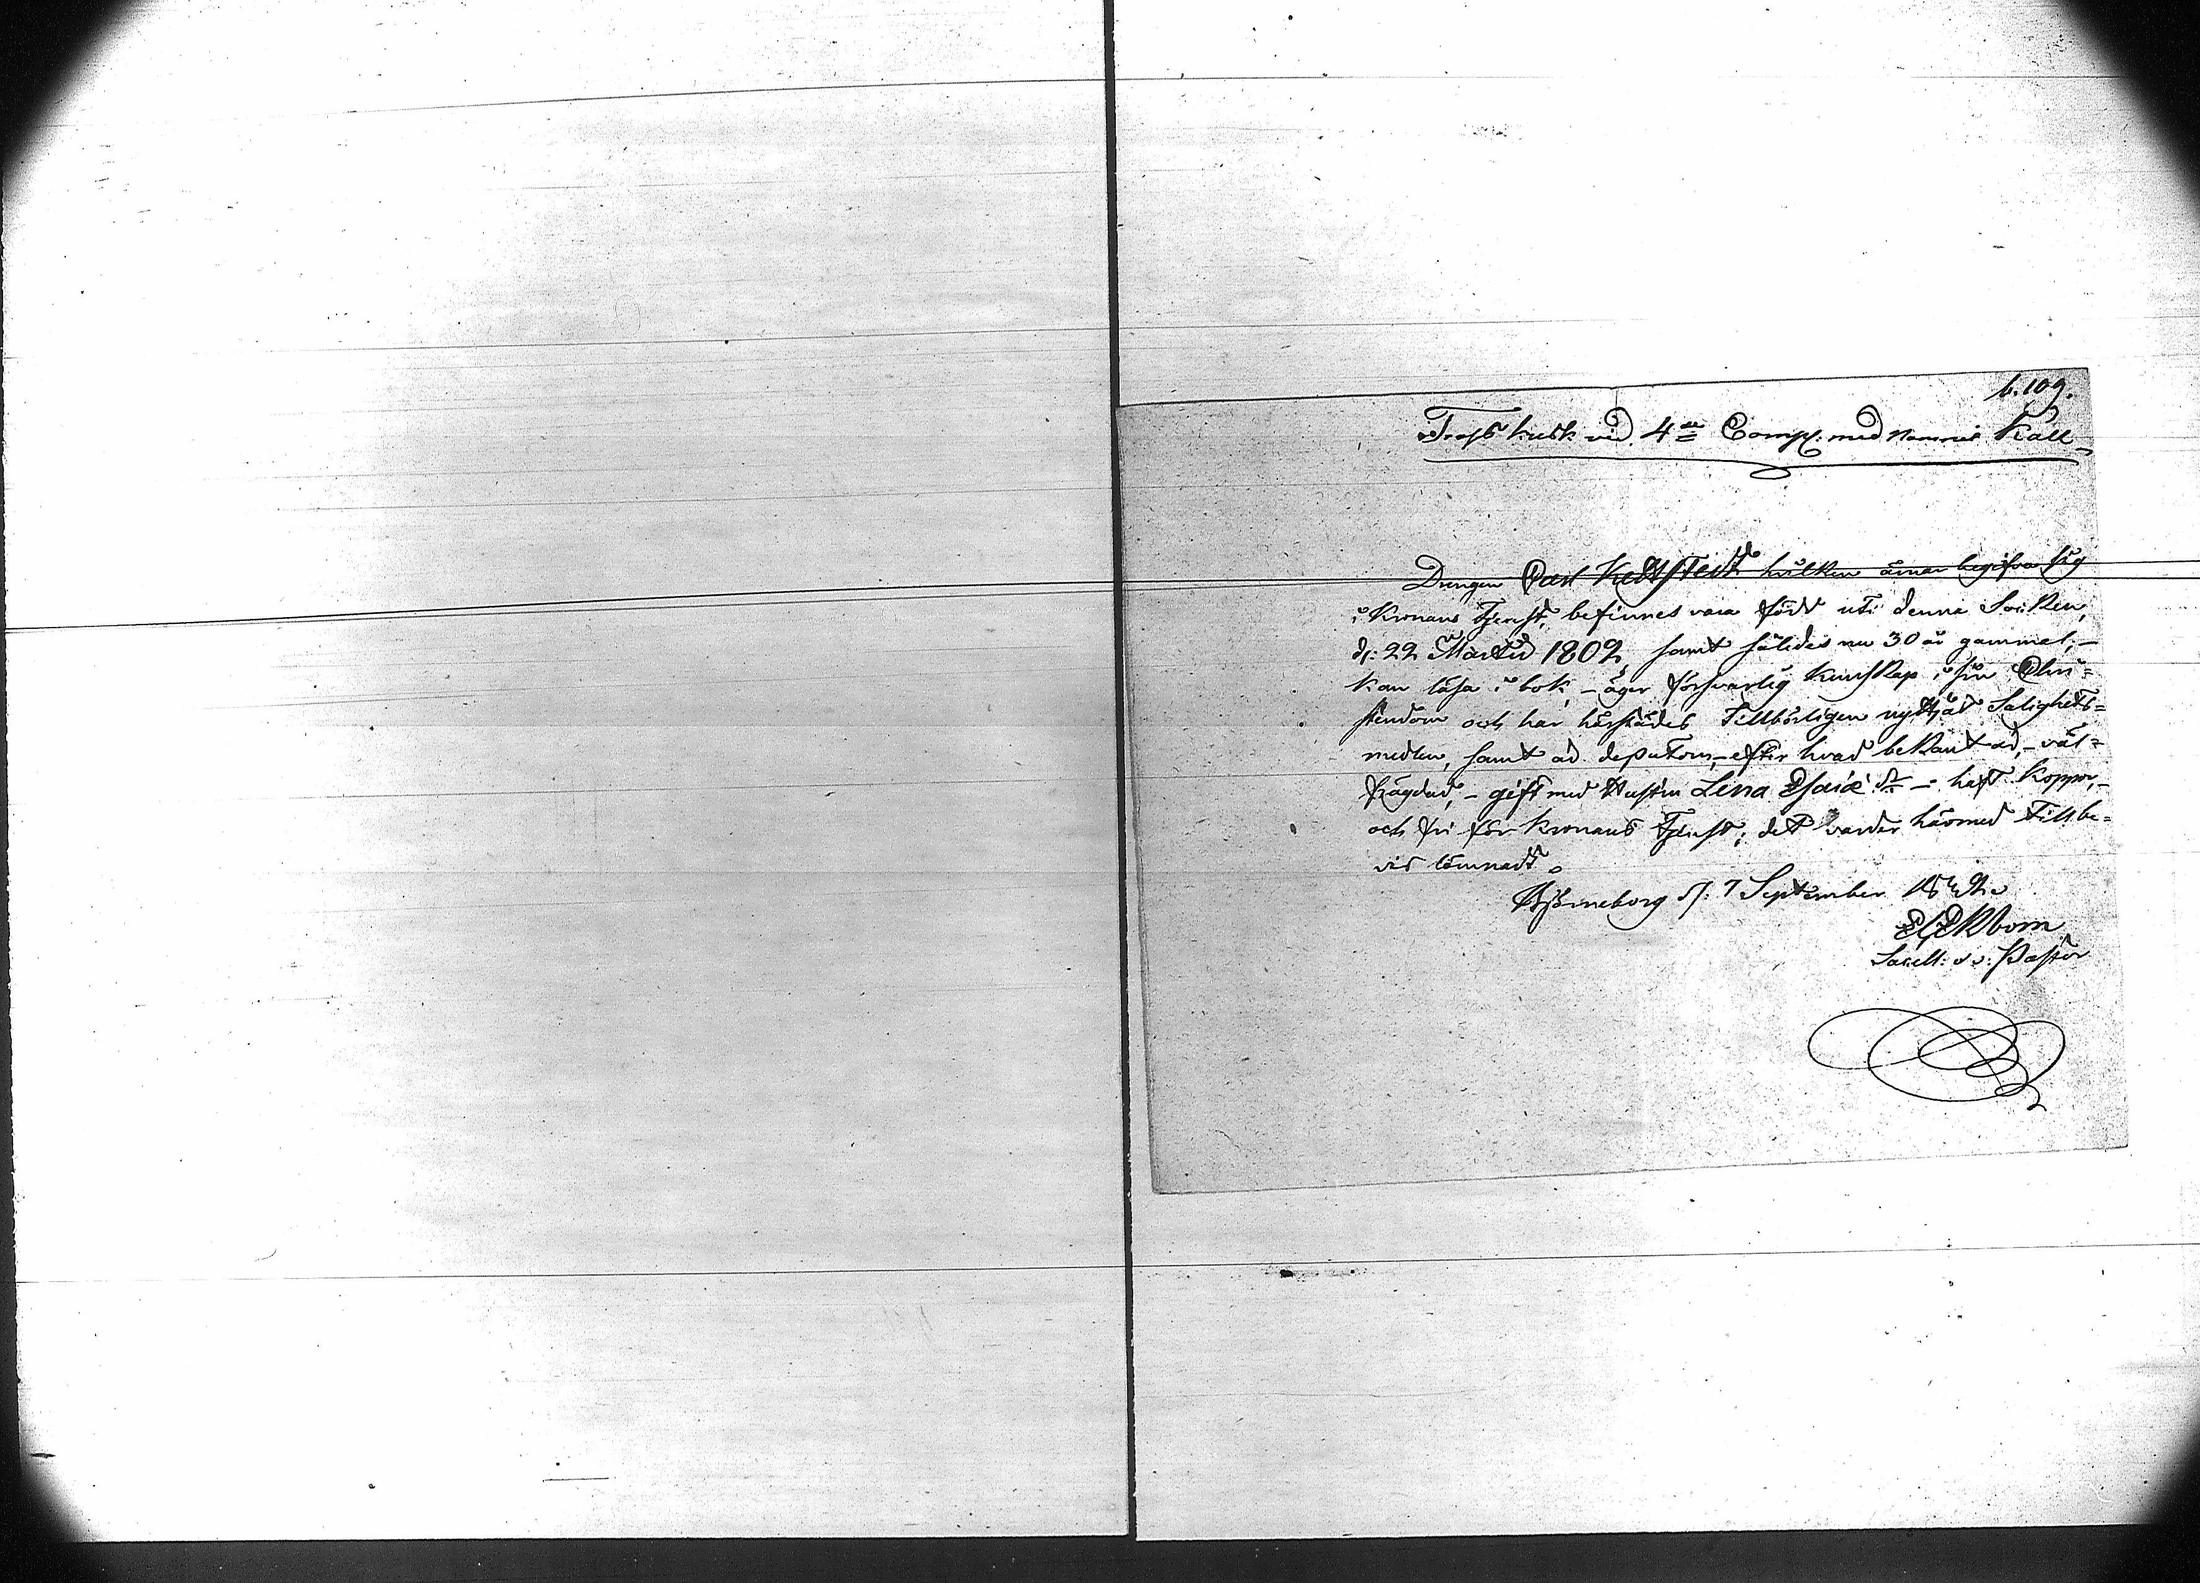 b. 109.
Trosskusk vid 4de Comp. med Namnet Käll
Drengen Carl Kettstedt hvilken ämar begifva sig
i Kronans Tjenst, befinnes vara född uti denna Soicken,
d: 22 Martii 1802, samt således nu 30 år gammal; –
kan läsa i bok, – äger försvarlig kunskap i sin Chri=
stendom och har härstädes Tillbörligen nyttjat Salighets=
medlen, samt ad deputorn, – efter hvad bekant är, – väl=
frägdad, – gift med Hustru Lina Esaiæ dr – haft koppor, –
och fri för Kronans Tjenst; det varder härmed till be=
vis lemnadt.
Björneborg d: 7 September 1832.
Ekbom
Sacell: v: Pastor